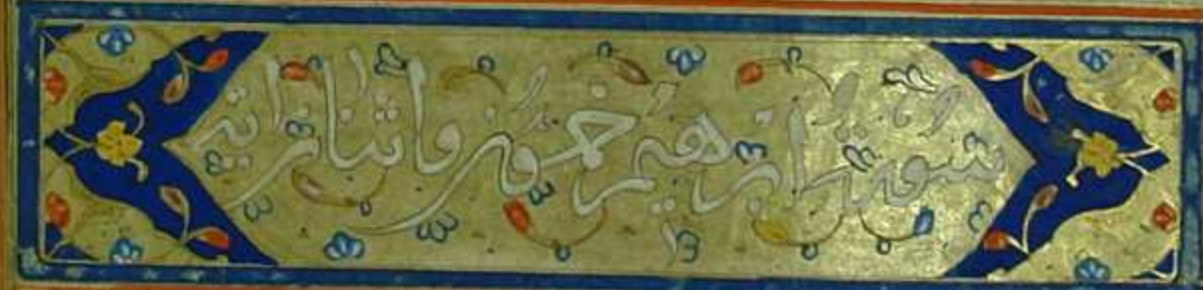 سورة ابرهيم خمسون واثنان اية